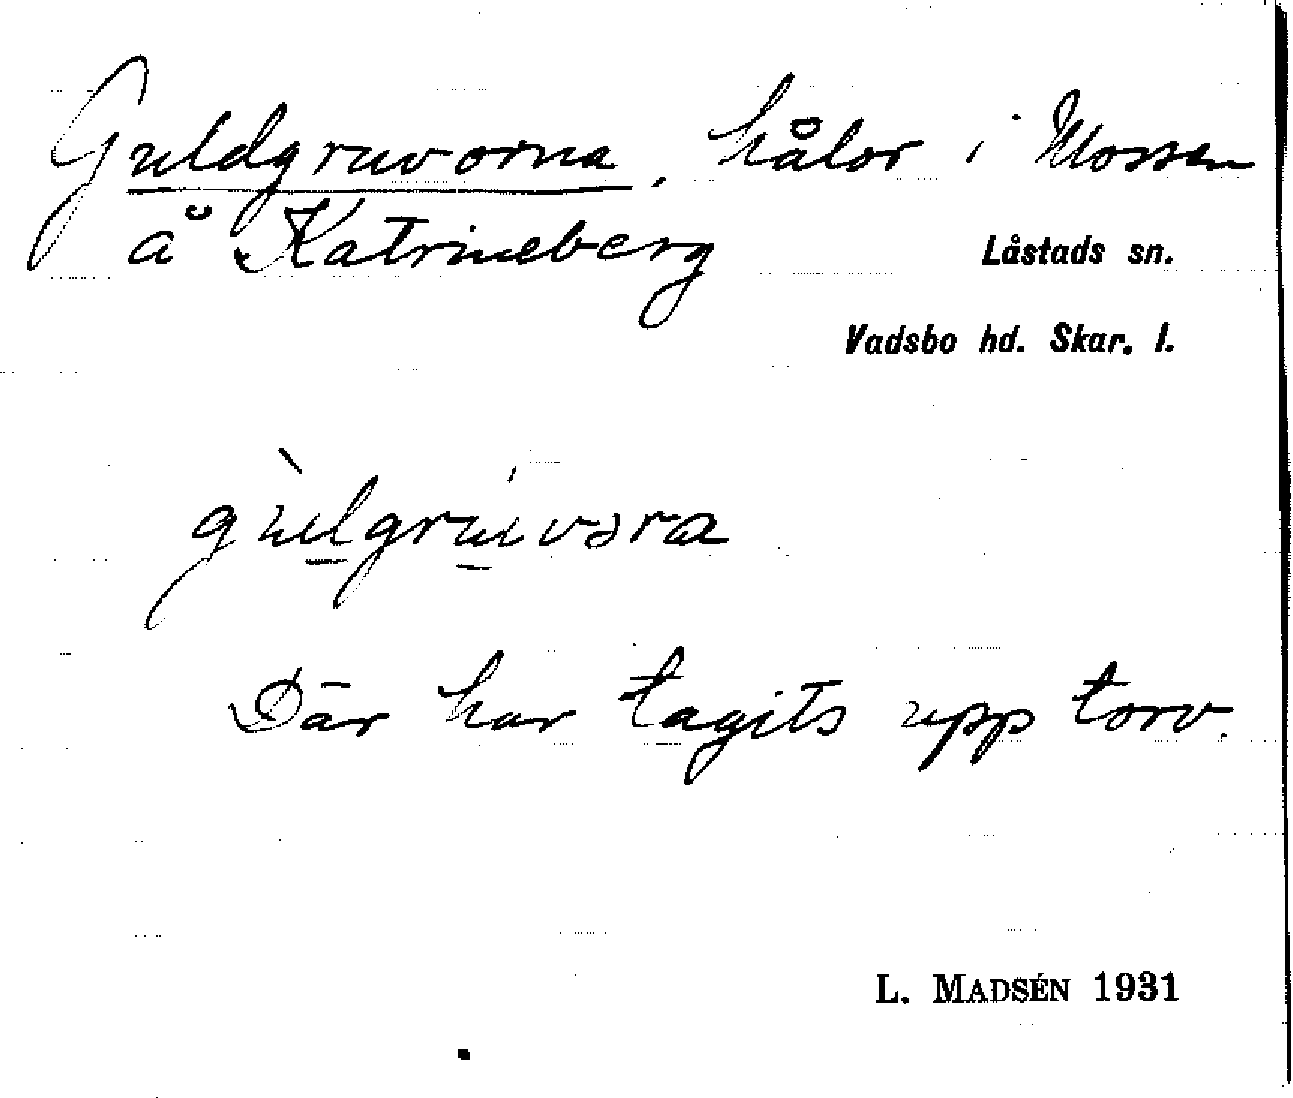 Guldgruvorna, hålor i Mossen
å Katrineberg
Låstads sn.
Vadsbo hd. Skar. l.
gùlgrúvəra
Där har tagits upp torv.
L. MADSÉN 1931